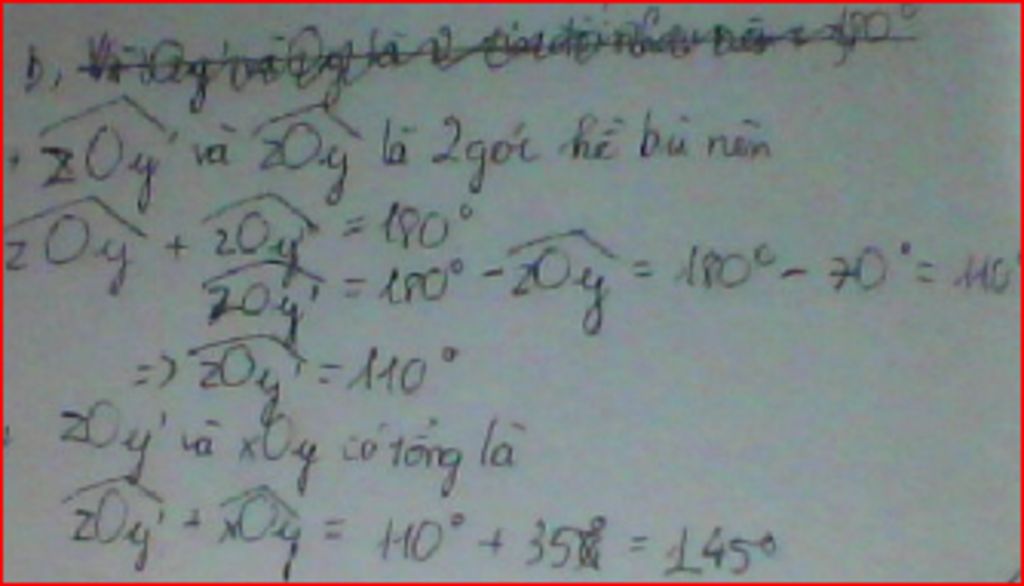 b,
zOy' và zOy là 2 góc kề bù nên
zOy + zOy' = 180°
zOy' = 180° - zOy = 180° - 70° = 110°
=> zOy' = 110°
zOy' và xOy có tổng là
zOy' + xOy = 110° + 35° = 145°